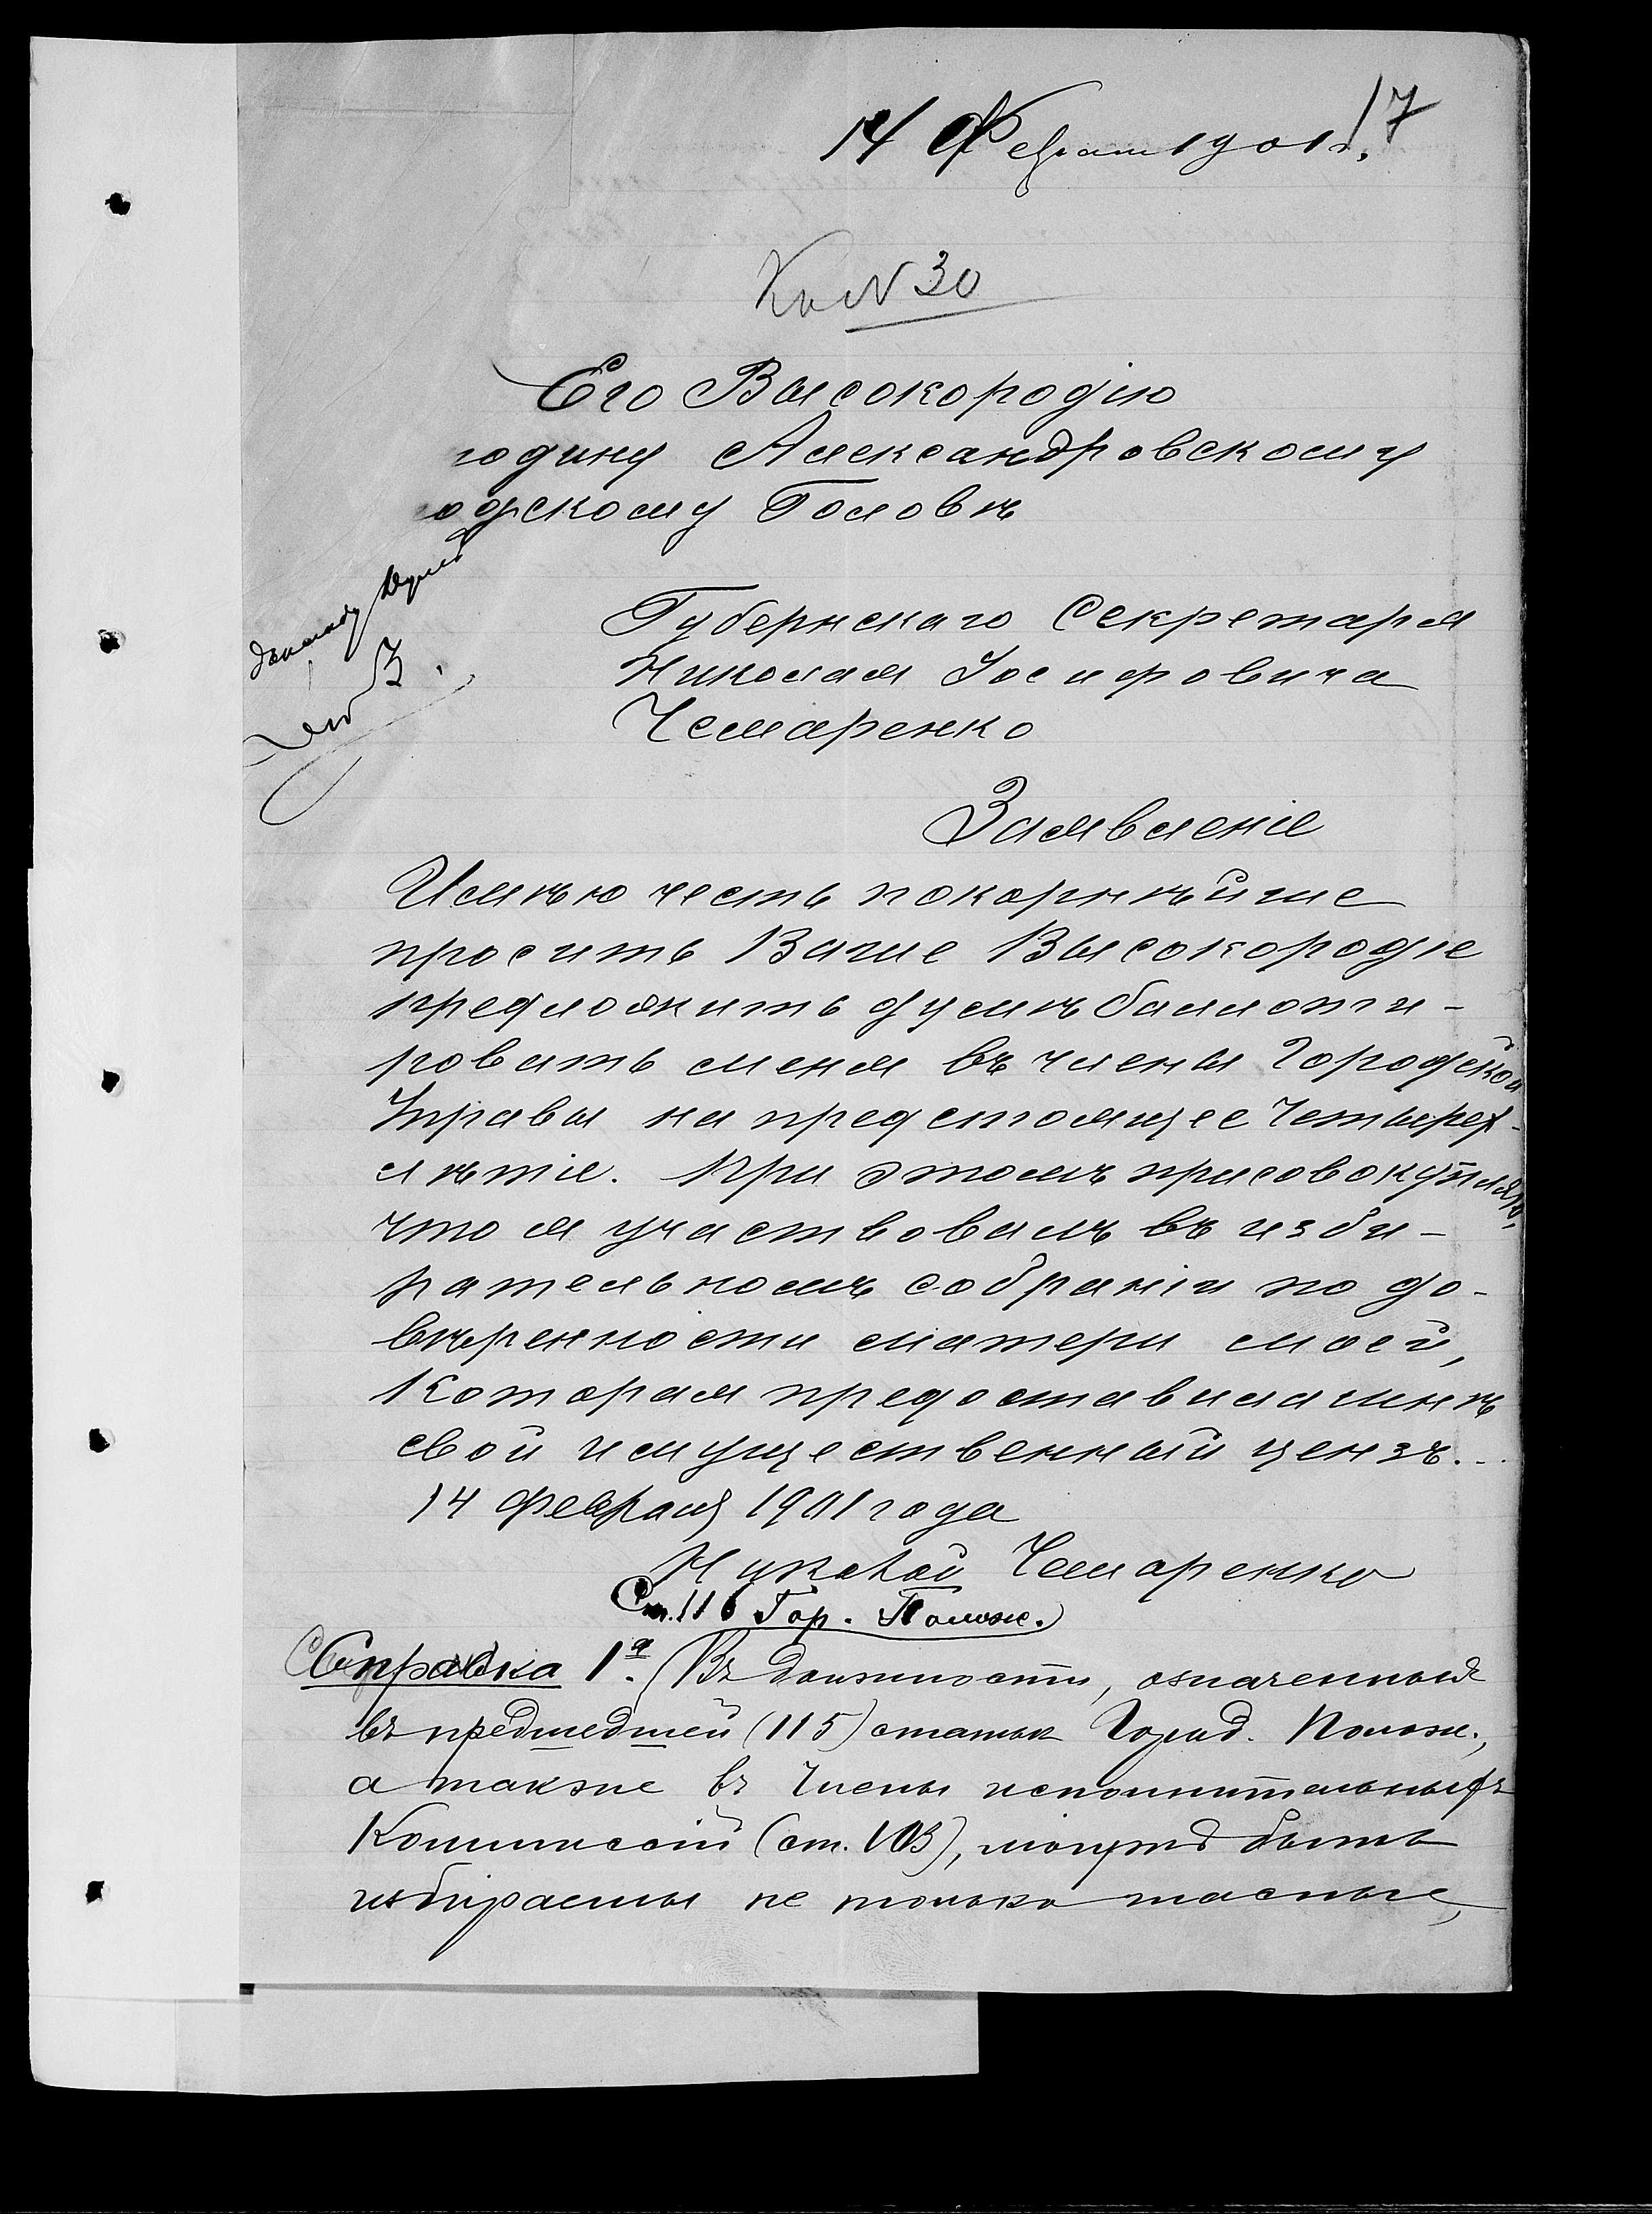 17
14 Февраля 1901 г.
Къ № 30
Его Высокородію
годину Александровскому
одскому Головѣ
докладу Думѣ
Губернскаго Секретаря
Николая Іосифовича
Чемаренко
Заявленіе
Имѣю честь покорнѣйше
просить Ваше Высокородіе
предложить думѣ баллоти-
ровать меня въ члены Городской
Управы на предстоящее Четырех-
лѣтіе. При этомъ присовокупляю,
что я участвовалъ въ изби-
рательномъ собраніи по до-
вѣренности матери моей,
Которая предоставила мнѣ
свой имущественный цензъ...
14 февраля 1901 года
Николай Чемаренко
Ст. 116 Гор. Полож.
Справка 1я. (Въ должности, означенныя
въ предшедшей (115) статьѣ Город. Полож.,
а также въ Члены исполнительныхъ
Коммиссій (ст. 103), могутъ быть
избираемы не только гласные,